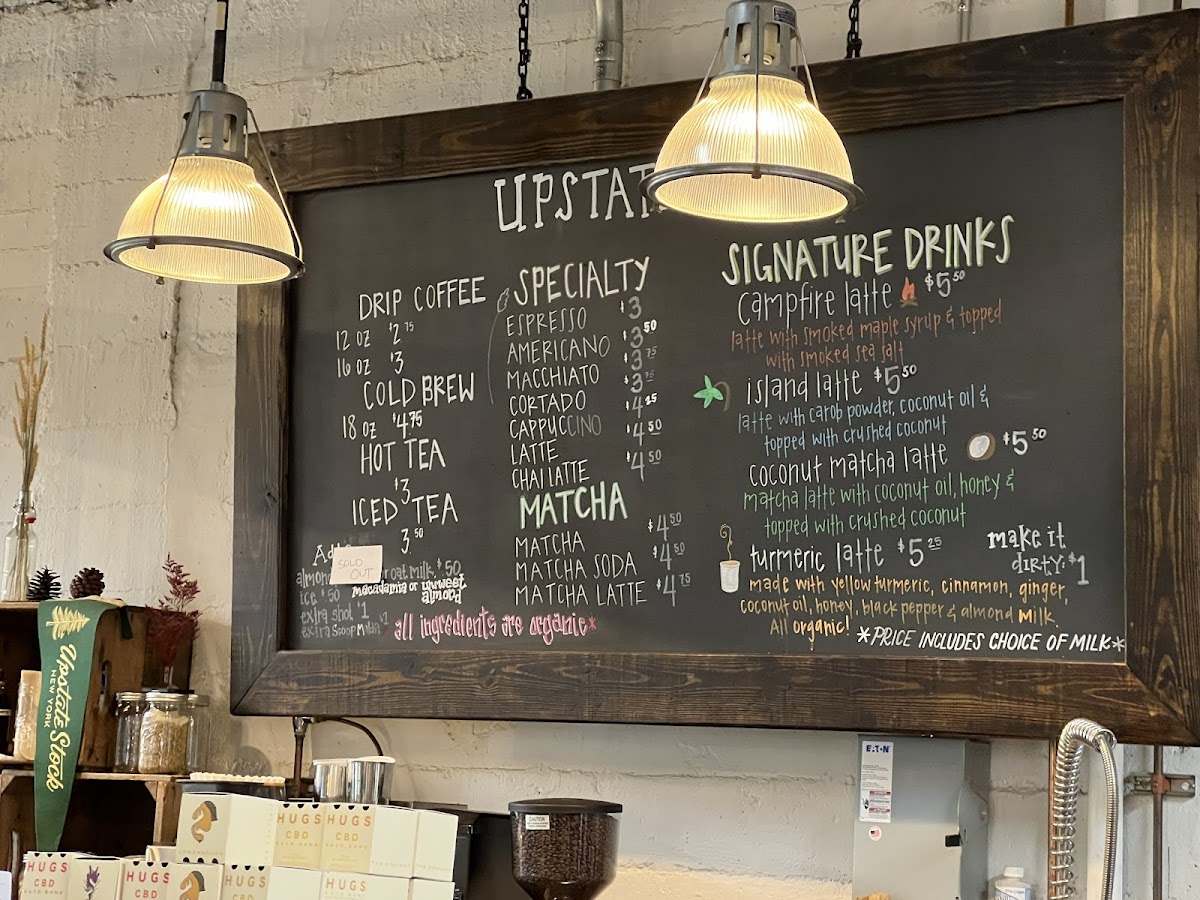 UPSTAT
DRIP COFFEE
12 OZ $2.75
16 OZ $3
COLD BREW
18 OZ $4.75
HOT TEA
$3
ICED TEA
3.50
SOLD OUT
oat milk $.50
macadamia or unsweet
almond
ice $.50
extra shot $1
extra scoop
*all ingredients are organic*
SPECIALTY
ESPRESSO $3
AMERICANO $3.50
MACCHIATO $3.75
CORTADO $3.75
CAPPUCCINO $4.25
LATTE $4.50
CHAI LATTE $4.50
MATCHA
MATCHA $4.50
MATCHA SODA $4.50
MATCHA LATTE $4.75
SIGNATURE DRINKS
campfire latte $5.50
latte with smoked maple syrup & topped
with smoked sea salt
island latte $5.50
latte with carob powder, coconut oil &
topped with crushed coconut
coconut matcha latte $5.50
matcha latte with coconut oil, honey &
topped with crushed coconut
turmeric latte $5.25
make it
dirty: $1
made with yellow turmeric, cinnamon, ginger,
coconut oil, honey, black pepper & almond milk.
All organic!
*PRICE INCLUDES CHOICE OF MILK*
Upstate Stock
NEW YORK
HUGS
CBD
HUGS
CBD
HUGS
CBD
HUGS
CBD
HUGS
CBD
HUGS
CAUTION
EATON